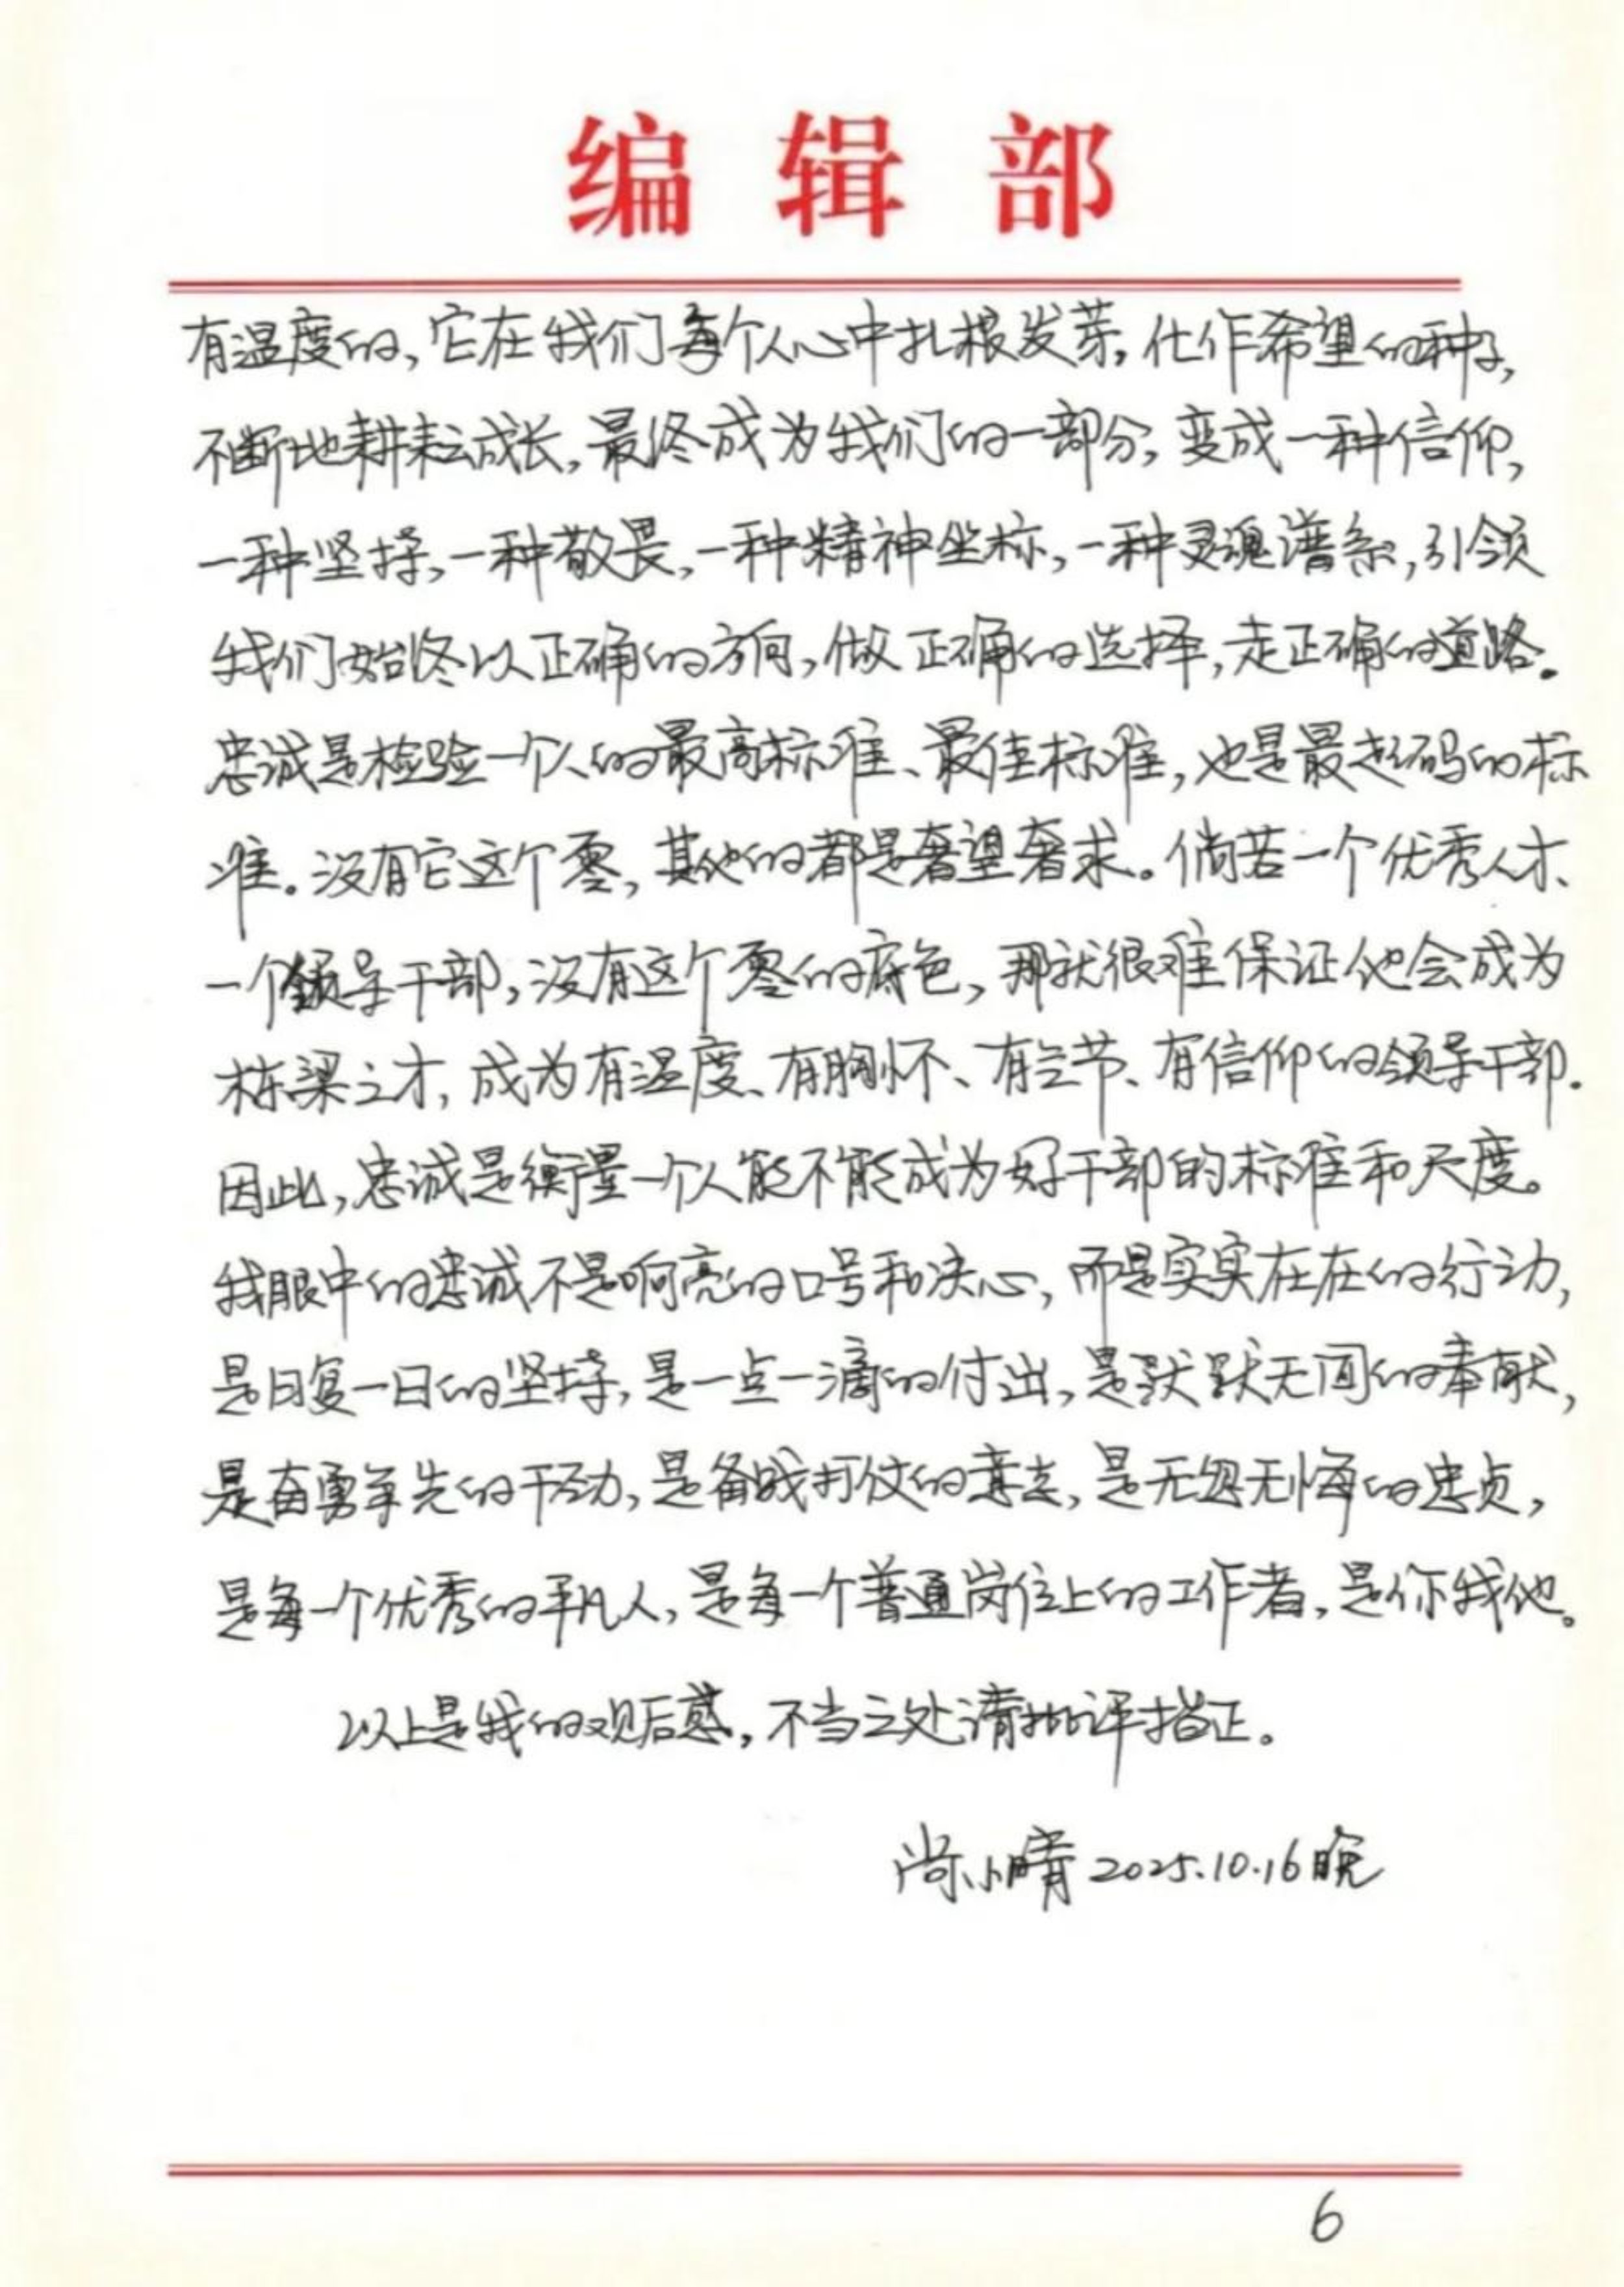 编辑部
有温度的,它在我们每个人心中扎根发芽,化作希望的种子,
不断地耕耘成长,最终成为我们的一部分,变成一种信仰,
一种坚持,一种敬畏,一种精神坐标,一种灵魂谱系,引领
我们始终以正确的方向,做正确的选择,走正确的道路。
忠诚是检验一个人的最高标准、最佳标准,也是最起码的标
准。没有它这个零,其他的都是奢望奢求。倘若一个优秀人才、
一个领导干部,没有这个零的底色,那就很难保证他会成为
栋梁之才,成为有温度、有胸怀、有气节、有信仰的领导干部.
因此,忠诚是衡量一个人能不能成为好干部的标准和尺度。
我眼中的忠诚不是响亮的口号和决心,而是实实在在的行动,
是日复一日的坚持,是一点一滴的付出,是默默无闻的奉献,
是奋勇争先的干劲,是备战打仗的意志,是无怨无悔的忠贞,
是每一个优秀的平凡人,是每一个普通岗位上的工作者,是你我他。
以上是我的观后感,不当之处请批评指正。
尚小晴 2025.10.16 晚
6